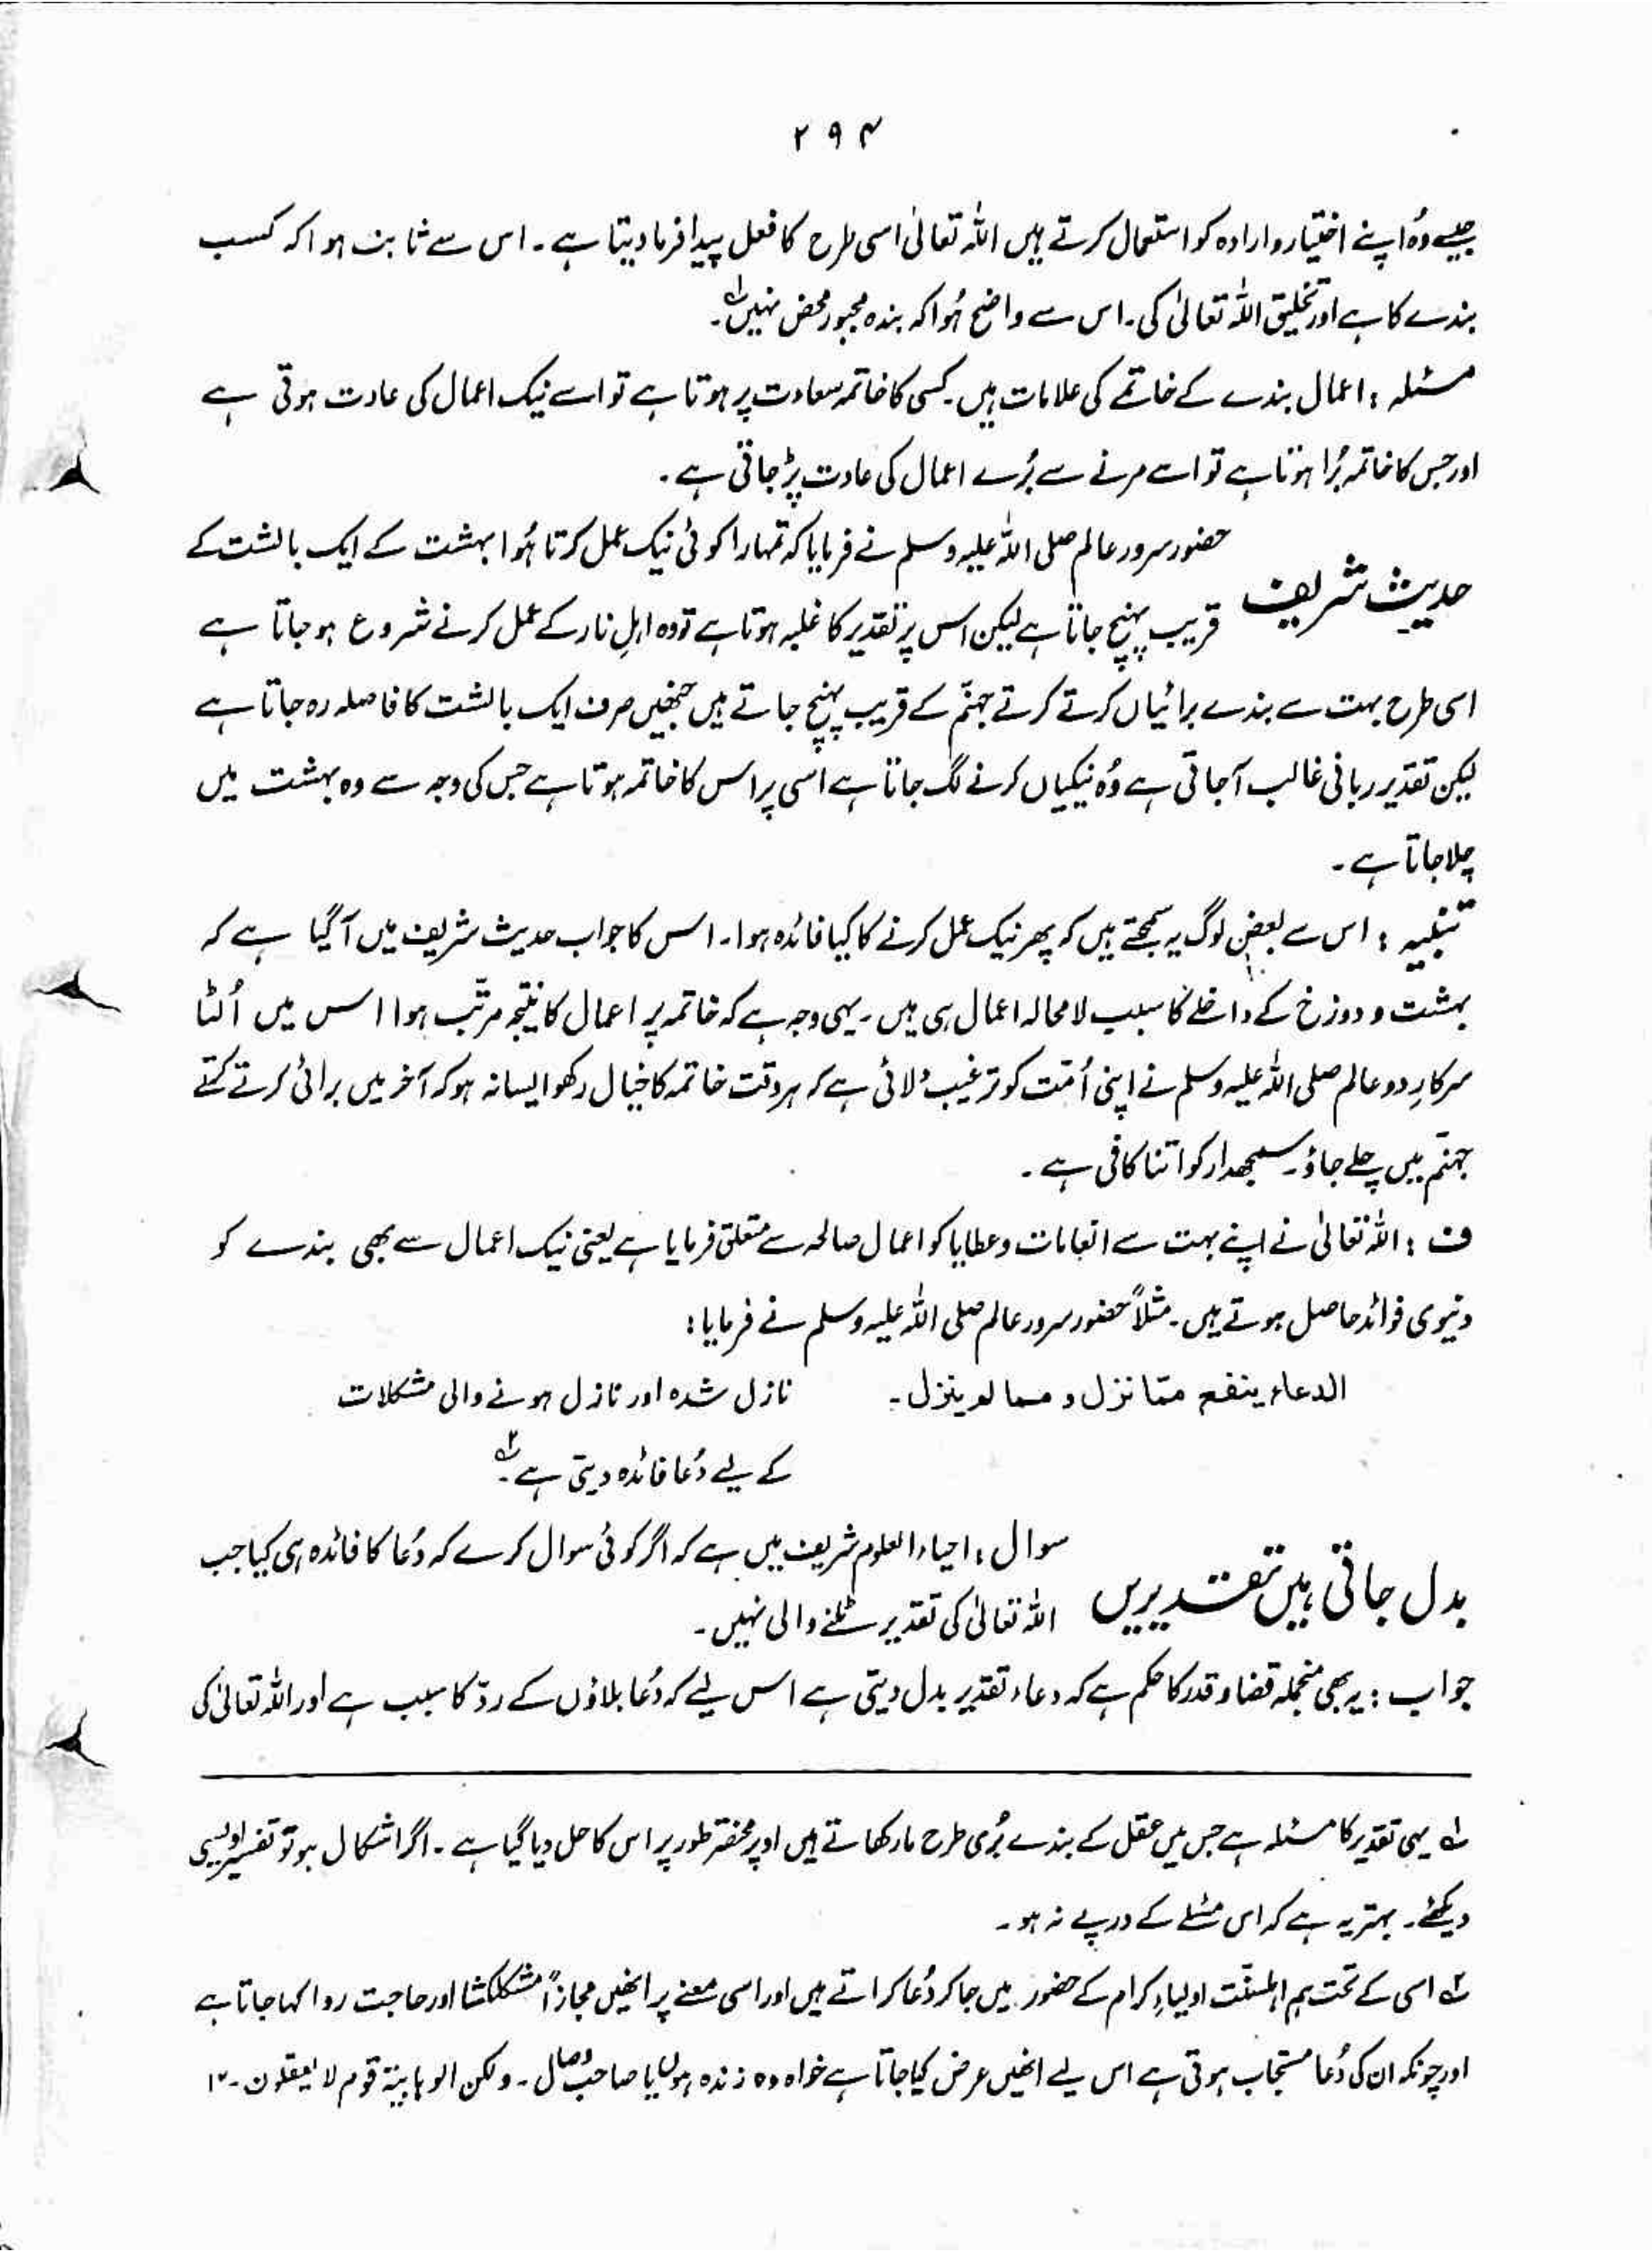 ۲۹۴
جیسے وُہ اپنے اختیار و ارادہ کو استعمال کرتے ہیں اللہ تعالیٰ اسی طرح کا فعل پیدا فرما دیتا ہے۔ اس سے ثابت ہوا کہ کسب
بندے کا ہے اور تخلیق اللہ تعالیٰ کی۔ اس سے واضح ہُوا کہ بندہ مجبور محض نہیں۱؎۔
مسئلہ : اعمال بندے کے خاتمے کی علامات ہیں۔ کسی کا خاتمہ سعادت پر ہوتا ہے تو اسے نیک اعمال کی عادت ہوتی ہے
اور جس کا خاتمہ بُرا ہوتا ہے تو اسے مرنے سے بُرے اعمال کی عادت پڑ جاتی ہے۔
حدیث شریف حضور سرور عالم صلی اللہ علیہ وسلم نے فرمایا کہ تمہارا کوئی نیک عمل کرتا ہُوا بہشت کے ایک بالشت کے
قریب پہنچ جاتا ہے لیکن اس پر تقدیر کا غلبہ ہوتا ہے تو وہ اہلِ نار کے عمل کرنے شروع ہو جاتا ہے
اسی طرح بہت سے بندے برائیاں کرتے کرتے جہنّم کے قریب پہنچ جاتے ہیں جنھیں صرف ایک بالشت کا فاصلہ رہ جاتا ہے
لیکن تقدیر ربانی غالب آجاتی ہے وُہ نیکیاں کرنے لگ جاتا ہے اسی پر اس کا خاتمہ ہوتا ہے جس کی وجہ سے وہ بہشت میں
چلا جاتا ہے۔
تنبیہ : اس سے بعض لوگ یہ سمجھتے ہیں کہ پھر نیک عمل کرنے کا کیا فائدہ ہوا۔ اس کا جواب حدیث شریف میں آگیا ہے کہ
بہشت و دوزخ کے داخلے کا سبب لامحالہ اعمال ہی ہیں۔ یہی وجہ ہے کہ خاتمہ پر اعمال کا نتیجہ مرتّب ہوا اس میں اُلٹا
سرکارِ دو عالم صلی اللہ علیہ وسلم نے اپنی اُمّت کو ترغیب دلائی ہے کہ ہر وقت خاتمہ کا خیال رکھو ایسا نہ ہو کہ آخر میں برائی کرتے کرتے
جہنّم میں چلے جاؤ۔ سمجھدار کو اتنا کافی ہے۔
ف : اللہ تعالیٰ نے اپنے بہت سے انعامات و عطایا کو اعمال صالحہ سے متعلق فرمایا ہے یعنی نیک اعمال سے بھی بندے کو
دنیوی فوائد حاصل ہوتے ہیں۔ مثلاً حضور سرور عالم صلی اللہ علیہ وسلم نے فرمایا :
الدعاء ینفع ممّا نزل و مما لم ینزل۔ نازل شدہ اور نازل ہونے والی مشکلات
کے لیے دُعا فائدہ دیتی ہے۲؎۔
بدل جاتی ہیں تقدیریں سوال : احیاء العلوم شریف میں ہے کہ اگر کوئی سوال کرے کہ دُعا کا فائدہ ہی کیا جب
اللہ تعالیٰ کی تقدیر ٹلنے والی نہیں۔
جواب : یہ بھی منجملہ قضا و قدر کا حکم ہے کہ دعاء تقدیر بدل دیتی ہے اس لیے کہ دُعا بلاؤں کے ردّ کا سبب ہے اور اللہ تعالیٰ کی
۱؎ یہی تقدیر کا مسئلہ ہے جس میں عقل کے بندے بُری طرح مار کھاتے ہیں اوپر مختصر طور پر اس کا حل دیا گیا ہے۔ اگر اشکال ہو تو تفسیر اویسی
دیکھئے۔ بہتر یہ ہے کہ اس مسئلے کے درپے نہ ہو۔
۲؎ اسی کے تحت ہم اہلسنّت اولیاء کرام کے حضور میں جا کر دُعا کراتے ہیں اور اسی معنے پر انھیں مجازاً مشکلکشا اور حاجت روا کہا جاتا ہے
اور چونکہ ان کی دُعا مستجاب ہوتی ہے اس لیے انھیں عرض کیا جاتا ہے خواہ وہ زندہ ہوں یا صاحبِ وصال۔ ولکن الوہابیۃ قوم لا یعقلون۔ ۱۲